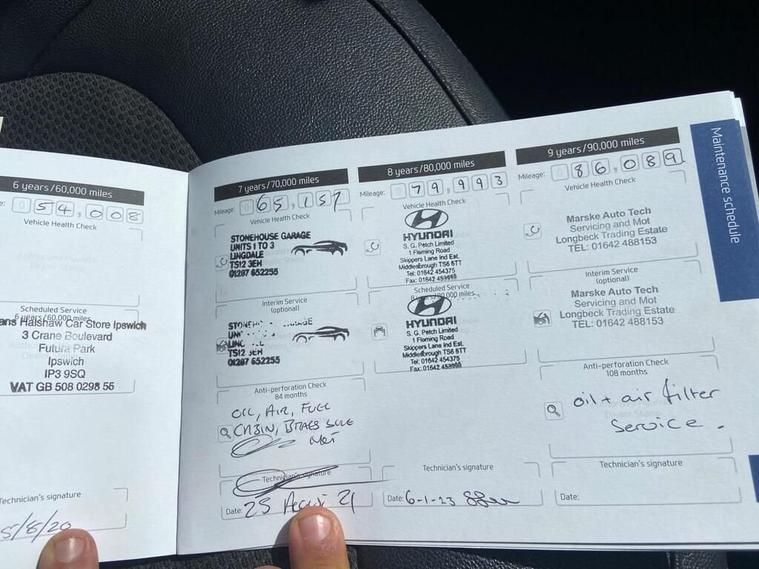 6 years/60,000 miles
54,008
Vehicle Health Check
Scheduled Service
6 years/60,000 miles
ans Halshaw Car Store Ipswich
3 Crane Boulevard
Futura Park
Ipswich
IP3 9SQ
VAT GB 508 0298 56
Technician's signature
5/8/20
7 years/70,000 miles
Mileage: 065,157
Vehicle Health Check
STONEHOUSE GARAGE
UNITS 1 TO 3
LINGDALE
TS12 3EH
01287 652255
Interim Service
(optional)
TS12 3EH
01287 652255
Anti-perforation Check
84 months
OIL, AIR, FUEL
CABIN, BRAKES
MOT
Technician's signature
Date: 25
21
8 years/80,000 miles
Mileage: 079,993
Vehicle Health Check
HYUNDAI
S. G. Petch Limited
1 Fleming Road
Skippers Lane Ind Est.
Middlesbrough TS6 6TT
Tel: 01642 454375
Fax: 01642
Scheduled Service
HYUNDAI
S. G. Petch Limited
1 Fleming Road
Skippers Lane Ind Est.
Middlesbrough TS6 6TT
Tel: 01642 454375
Fax: 01642
Technician's signature
Date: 6-1-23
9 years/90,000 miles
Mileage: 086,089
Vehicle Health Check
Marske Auto Tech
Servicing and Mot
Longbeck Trading Estate
TEL: 01642 488153
Interim Service
(optional)
Marske Auto Tech
Servicing and Mot
Longbeck Trading Estate
TEL: 01642 488153
Anti-perforation Check
108 months
oil + air filter
Service.
Technician's signature
Date:
Maintenance schedule